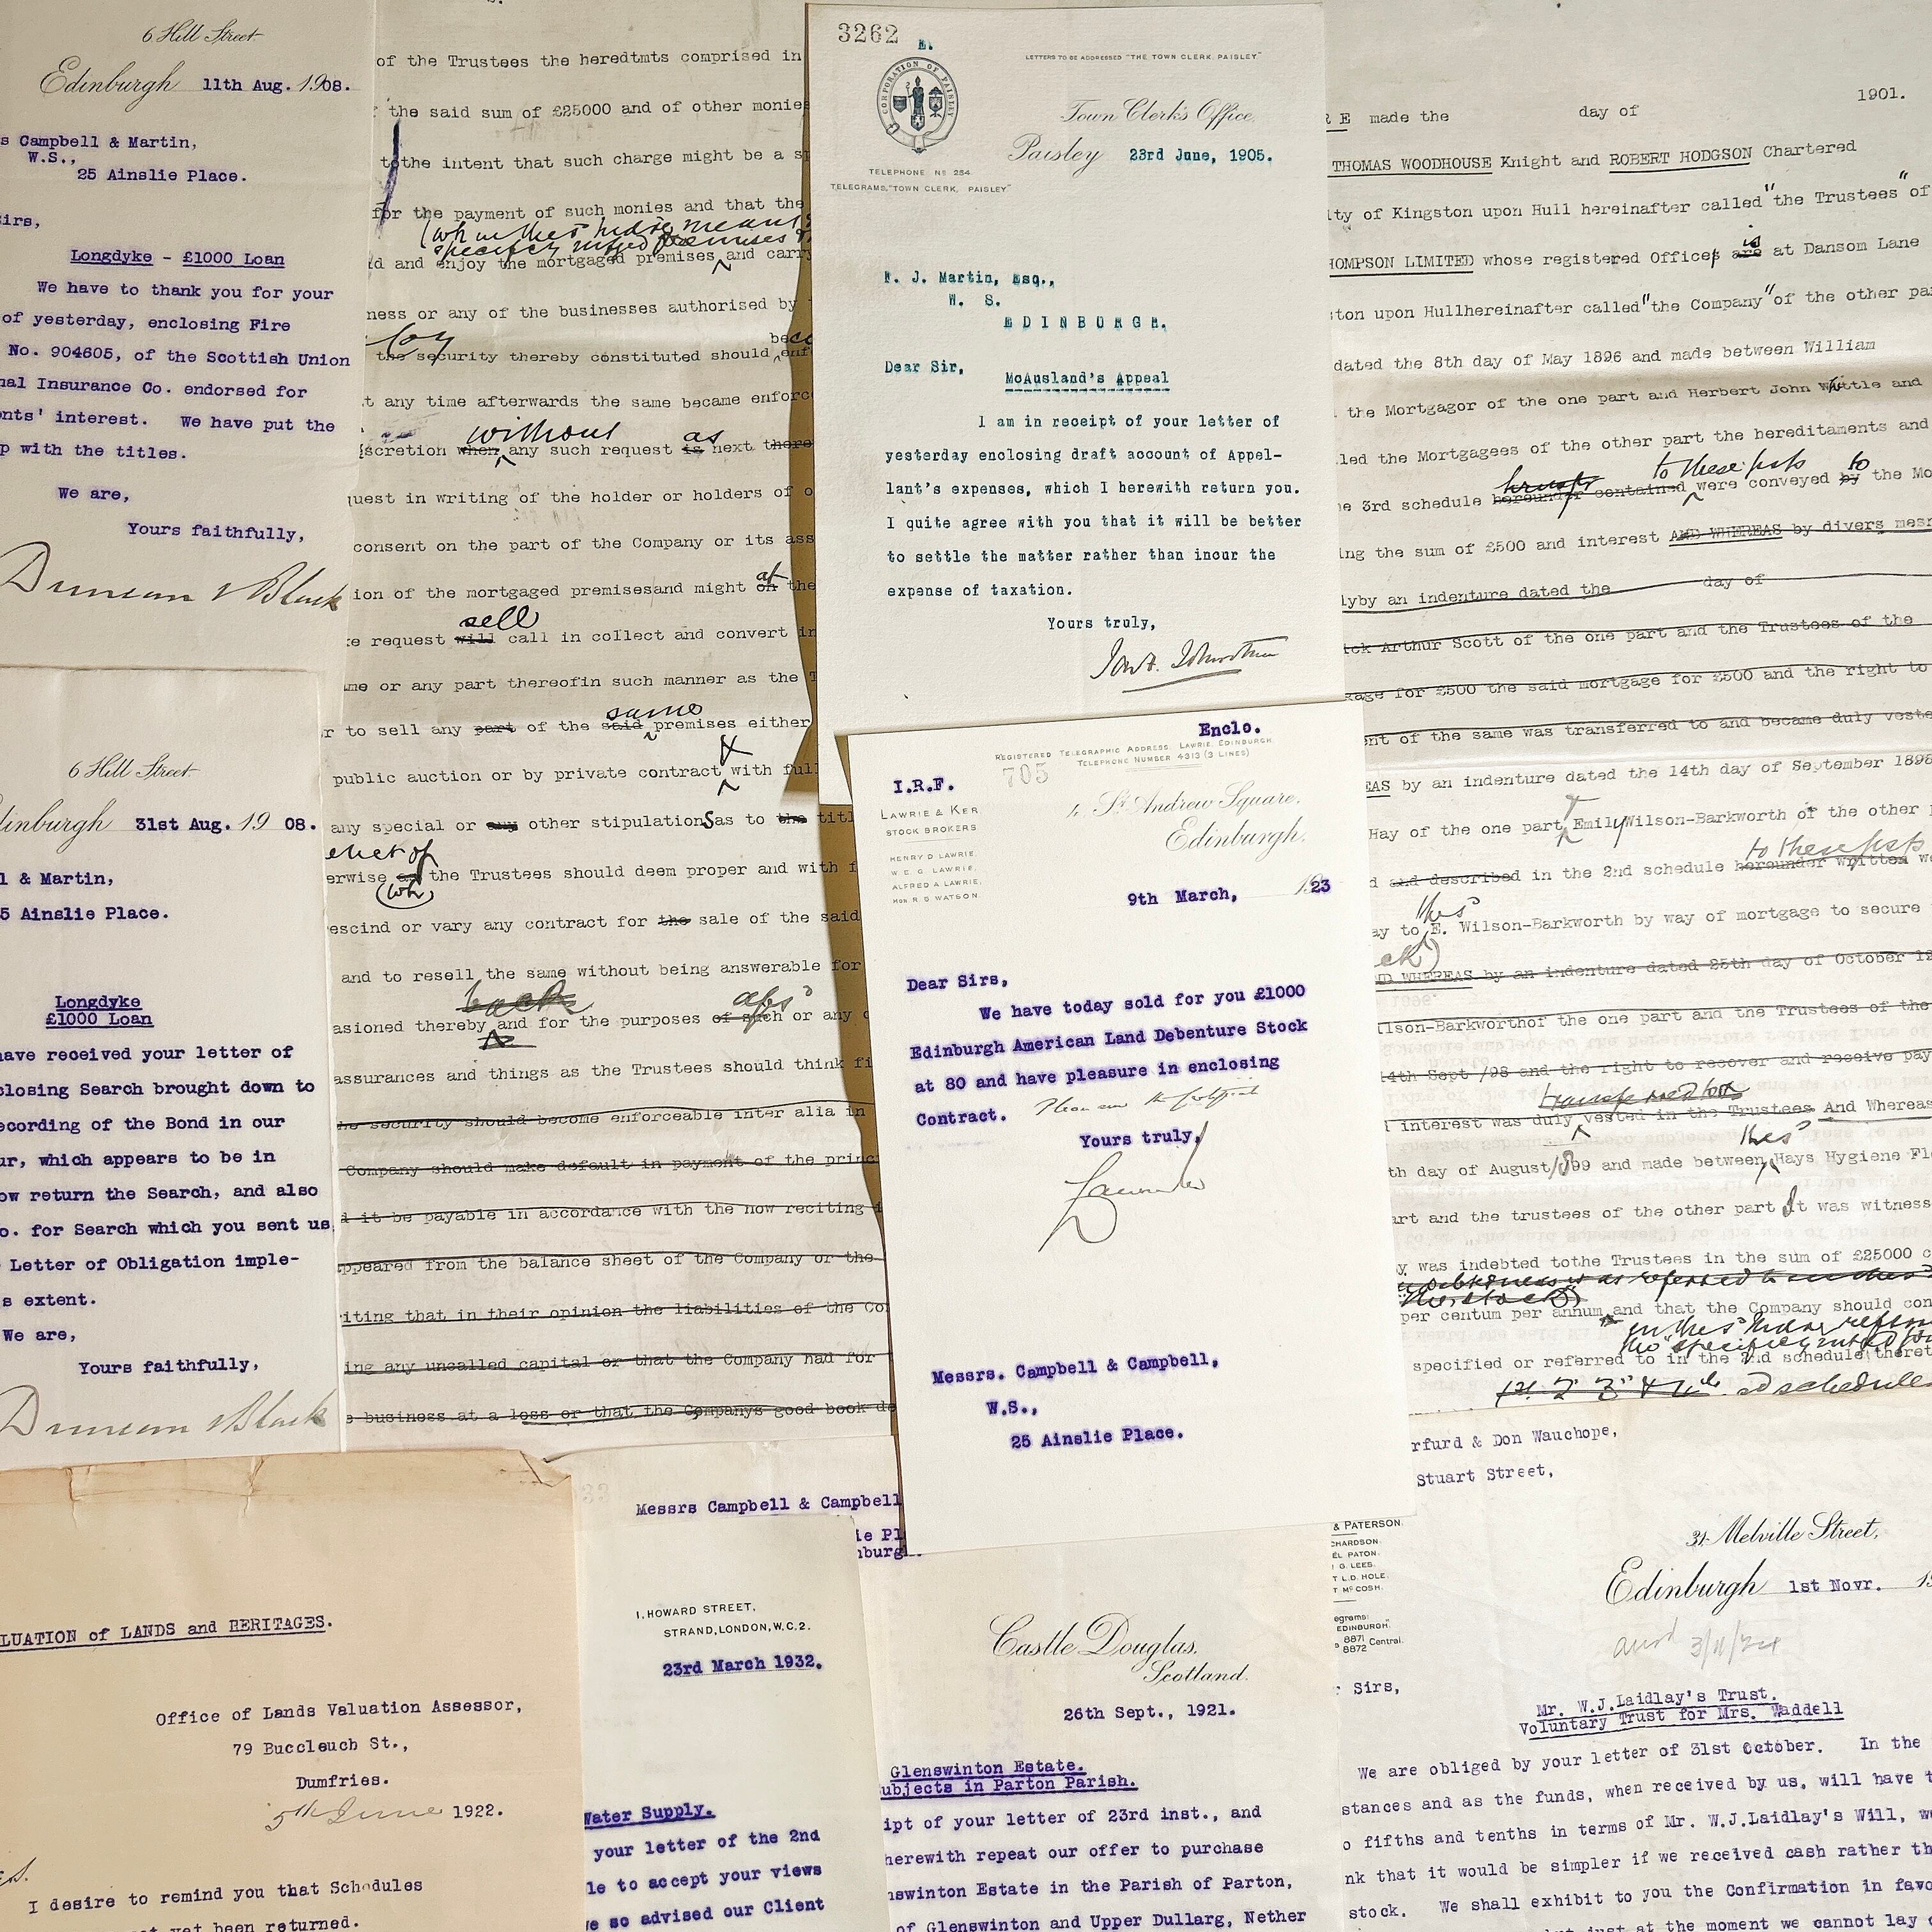 6 Hill Street.
Edinburgh 11th Aug. 1908.
s Campbell & Martin,
W.S.,
25 Ainslie Place.
irs,
Longdyke - £1000 Loan
We have to thank you for your
of yesterday, enclosing Fire
No. 904605, of the Scottish Union
nal Insurance Co. endorsed for
ents' interest. We have put the
p with the titles.
We are,
Yours faithfully,
Duncan & Black
6 Hill Street
dinburgh 31st Aug. 19 08.
l & Martin,
5 Ainslie Place.
Longdyke
£1000 Loan
have received your letter of
closing Search brought down to
ecording of the Bond in our
ur, which appears to be in
ow return the Search, and also
o. for Search which you sent us
Letter of Obligation imple-
s extent.
We are,
Yours faithfully,
Duncan & Black
of the Trustees the heredtmts comprised in
the said sum of £25000 and of other monie
tothe intent that such charge might be a s
for the payment of such monies and that the
d and enjoy the mortgaged premises and carr
ness or any of the businesses authorised by
by
the security thereby constituted should enf
t any time afterwards the same became enforc
without as
scretion when any such request is next there
uest in writing of the holder or holders of o
consent on the part of the Company or its ass
at
ion of the mortgaged premisesand might on the
sell
e request will call in collect and convert in
me or any part thereofin such manner as the T
same
r to sell any part of the said premises either
&
public auction or by private contract with full
any special or any other stipulationsas to the titl
erwise as the Trustees should deem proper and with f
escind or vary any contract for the sale of the said
and to resell the same without being answerable for
asioned thereby and for the purposes of such or any
assurances and things as the Trustees should think fi
he security should become enforceable inter alia in
Company should make default in payment of the princ
d it be payable in accordance with the now reciting i
ppeared from the balance sheet of the Company or the
iting that in their opinion the liabilities of the Co
ing any uncalled capital or that the Company had for
s business at a loss or that the Companys good book de
3262
E.
LETTERS TO BE ADDRESSED "THE TOWN CLERK, PAISLEY"
CORPORATION OF PAISLEY
Town Clerk's Office,
Paisley 23rd June, 1905.
TELEPHONE No 254
TELEGRAMS, "TOWN CLERK, PAISLEY"
F. J. Martin, Esq.,
W. S.
EDINBURGH.
Dear Sir,
McAusland's Appeal
I am in receipt of your letter of
yesterday enclosing draft account of Appel-
lant's expenses, which I herewith return you.
I quite agree with you that it will be better
to settle the matter rather than incur the
expense of taxation.
Yours truly,
Enclo.
REGISTERED TELEGRAPHIC ADDRESS. LAWRIE, EDINBURGH.
TELEPHONE NUMBER 4313 (3 LINES)
I.R.F.
705
LAWRIE & KER
STOCK BROKERS
HENRY D LAWRIE.
W. E. G. LAWRIE.
ALFRED A. LAWRIE.
HON R. B WATSON
4, St. Andrew Square,
Edinburgh.
9th March, 1923
Dear Sirs,
We have today sold for you £1000
Edinburgh American Land Debenture Stock
at 80 and have pleasure in enclosing
Contract.
Yours truly,
Messrs. Campbell & Campbell,
W.S.,
25 Ainslie Place.
1901.
R E made the day of
THOMAS WOODHOUSE Knight and ROBERT HODGSON Chartered
ity of Kingston upon Hull hereinafter called "the Trustees" of
is
HOMPSON LIMITED whose registered Offices are at Dansom Lane
ston upon Hullhereinafter called "the Company" of the other pa
dated the 8th day of May 1896 and made between William
the Mortgagor of the one part and Herbert John Wattle and
led the Mortgagees of the other part the hereditaments and
to these psts to
he 3rd schedule hereunder contained were conveyed by the Mo
ing the sum of £500 and interest AND WHEREAS by divers mesn
lyby an indenture dated the day of
ick Arthur Scott of the one part and the Trustees of the
gage for £500 the said mortgage for £500 and the right to
ent of the same was transferred to and became duly veste
EAS by an indenture dated the 14th day of September 1898
Hay of the one part Emily Wilson-Barkworth of the other
to these psts
d and described in the 2nd schedule hereunder written we
ay to E. Wilson-Barkworth by way of mortgage to secure
ND WHEREAS by an indenture dated 25th day of October 18
ilson-Barkworthof the one part and the Trustees of the
14th Sept /98 and the right to recover and receive pay
interest was duly vested in the Trustees And Whereas
th day of August 1899 and made between Hays Hygiene Fl
art and the trustees of the other part It was witness
y was indebted tothe Trustees in the sum of £25000
per centum per annum and that the Company should con
specified or referred to in the 2nd schedule theret
rfurd & Don Wauchope,
Stuart Street,
LUATION of LANDS and HERITAGES.
Office of Lands Valuation Assessor,
79 Buccleuch St.,
Dumfries.
5th June 1922.
I desire to remind you that Schedules
not yet been returned.
Messrs Campbell & Campbell
ie Pl
nburgh.
1, HOWARD STREET,
STRAND, LONDON, W.C.2.
23rd March 1932.
Water Supply.
your letter of the 2nd
le to accept your views
ve so advised our Client
Castle Douglas,
Scotland.
26th Sept., 1921.
Glenswinton Estate.
ubjects in Parton Parish.
ipt of your letter of 23rd inst., and
herewith repeat our offer to purchase
nswinton Estate in the Parish of Parton,
of Glenswinton and Upper Dullarg, Nether
& PATERSON.
CHARDSON.
EL PATON.
G. LEES.
T L.D. HOLE.
T McCOSH.
egrams:
EDINBURGH."
8871
8872 Central.
31 Melville Street,
Edinburgh 1st Novr. 19
3/11/24
Sirs,
Mr. W.J.Laidlay's Trust.
Voluntary Trust for Mrs. Waddell
We are obliged by your letter of 31st October. In the
stances and as the funds, when received by us, will have t
o fifths and tenths in terms of Mr. W.J.Laidlay's Will, we
nk that it would be simpler if we received cash rather th
stock. We shall exhibit to you the Confirmation in favo
but just at the moment we cannot lay